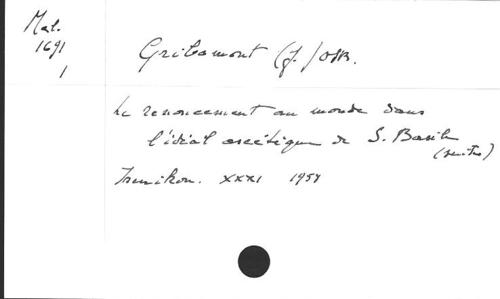 Mat.
1691
1
Gribomont (J.) OSB.
Le renoncement au monde dans
l'idéal ascétique de S. Basile
Irenikon. XXXI 1958